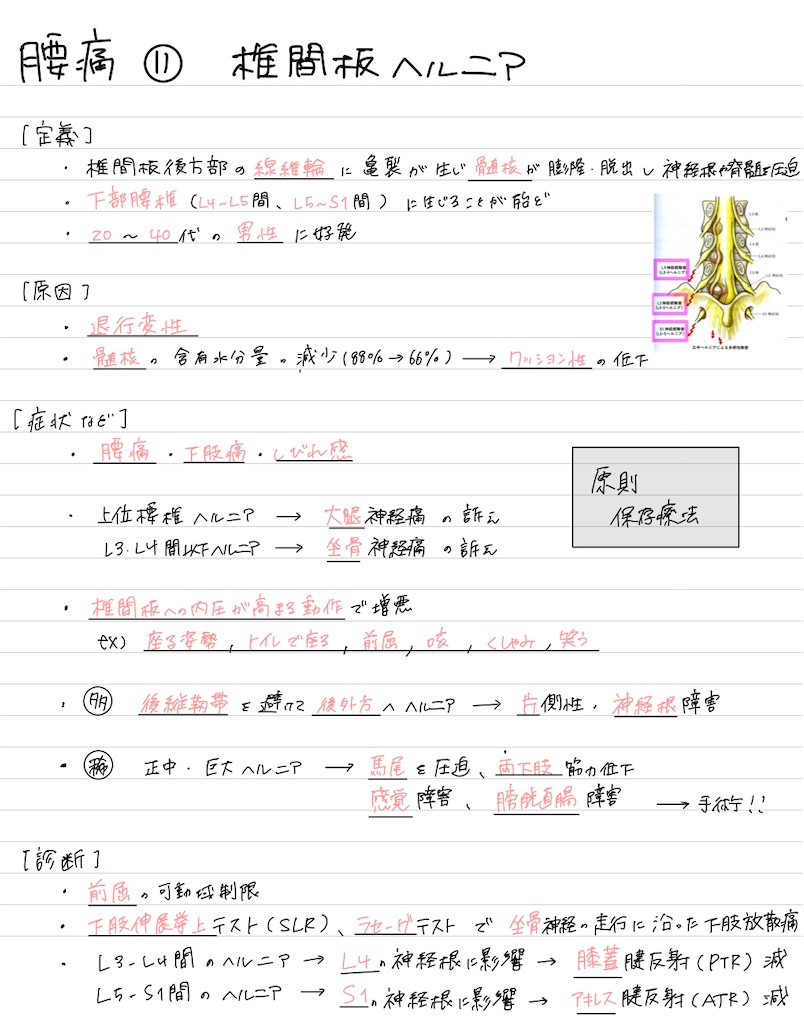 腰痛 ⑪ 椎間板ヘルニア
[定義]
・椎間板後方部の線維輪に亀裂が生じ髄核が膨隆・脱出し神経根や脊髄を圧迫
・下部腰椎(L4~L5間、L5~S1間)に生じることが殆ど
・20～40代の男性に好発
[原因]
・退行変性
・髄核の含有水分量の減少(88%→66%)→クッション性の低下
L4神経根障害
(L3-4ヘルニア)
L5神経根障害
(L4-5ヘルニア)
S1神経根障害
(L5-S ヘルニア)
正中ヘルニアによる多根性障害
[症状など]
・腰痛・下肢痛・しびれ感
・上位腰椎ヘルニア→大腿神経痛の訴え
L3・L4間以下ヘルニア→坐骨神経痛の訴え
原則
保存療法
・椎間板への内圧が高まる動作で増悪
ex) 座る姿勢, トイレで座る, 前屈, 咳, くしゃみ, 笑う
・㊕ 後縦靭帯を避けて後外方へヘルニア→片側性・神経根障害
・稀 正中・巨大ヘルニア→馬尾を圧迫、両下肢筋力低下
感覚障害、膀胱直腸障害→手術!!
[診断]
・前屈の可動域制限
・下肢伸展挙上テスト(SLR)、ラセーグテストで坐骨神経の走行に沿った下肢放散痛
・L3-L4間のヘルニア→L4の神経根に影響→膝蓋腱反射(PTR)減
L5-S1間のヘルニア→S1の神経根に影響→アキレス腱反射(ATR)減